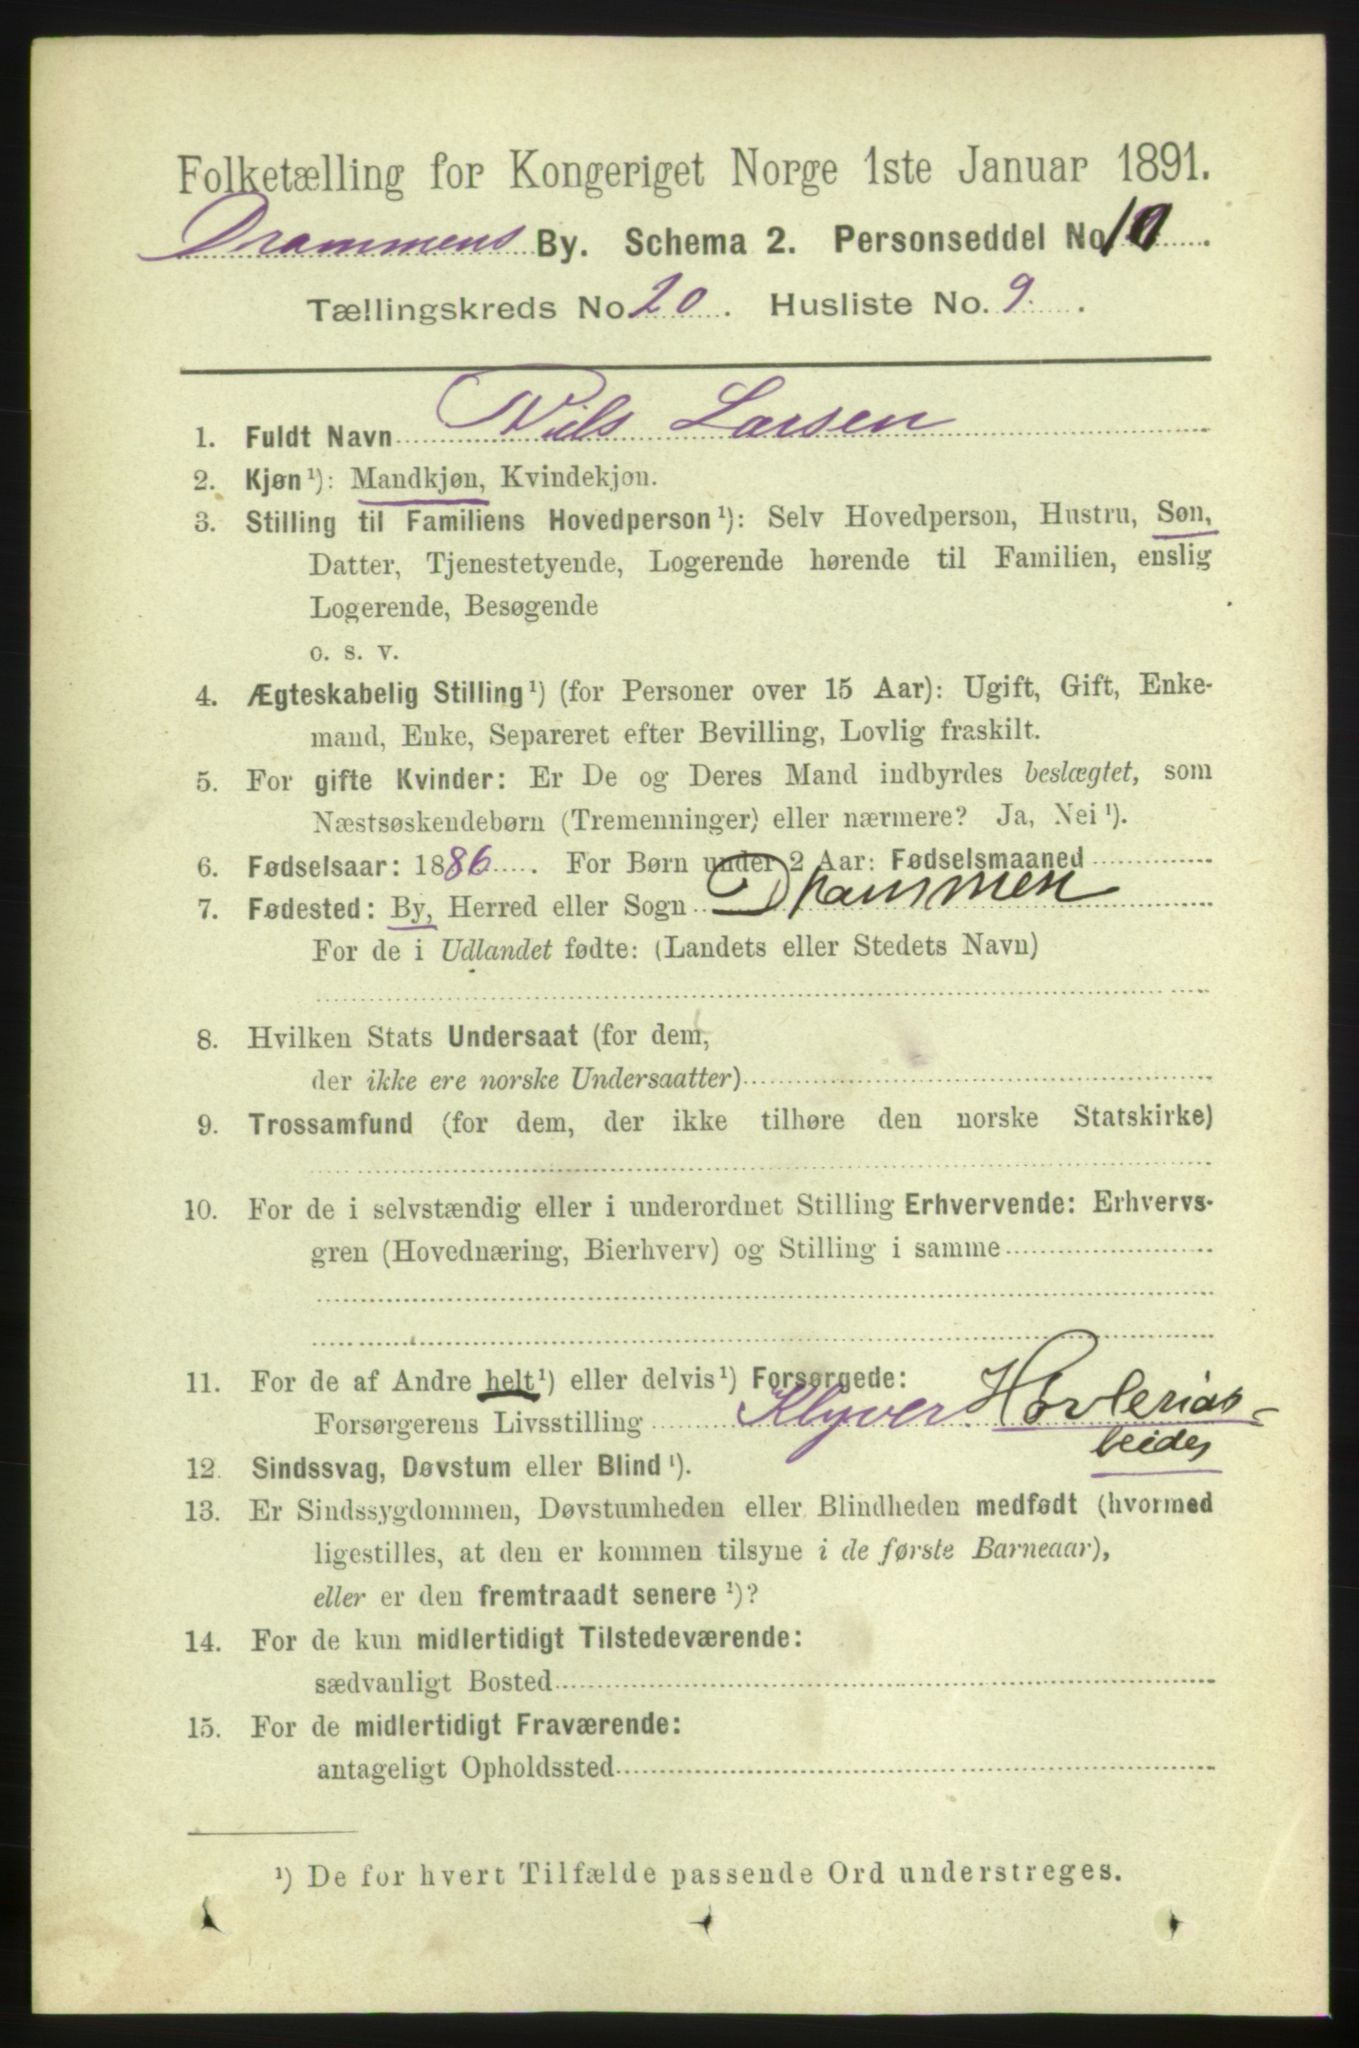 Folketælling for Kongeriget Norge 1ste Januar 1891.
Drammens By. Schema 2. Personseddel No 10.
Tællingskreds No 20. Husliste No. 9.
1. Fuldt Navn Niels Larsen
2. Kjøn ¹): Mandkjøn, Kvindekjøn.
3. Stilling til Familiens Hovedperson ¹): Selv Hovedperson, Hustru, Søn,
Datter, Tjenestetyende, Logerende hørende til Familien, enslig
Logerende, Besøgende
o. s. v.
4. Ægteskabelig Stilling ¹) (for Personer over 15 Aar): Ugift, Gift, Enke-
mand, Enke, Separeret efter Bevilling, Lovlig fraskilt.
5. For gifte Kvinder: Er De og Deres Mand indbyrdes beslægtet, som
Næstsøskendebørn (Tremenninger) eller nærmere? Ja, Nei ¹).
6. Fødselsaar: 1886. For Børn under 2 Aar: Fødselsmaaned
7. Fødested: By, Herred eller Sogn Drammen
For de i Udlandet fødte: (Landets eller Stedets Navn)
8. Hvilken Stats Undersaat (for dem,
der ikke ere norske Undersaatter)
9. Trossamfund (for dem, der ikke tilhøre den norske Statskirke)
10. For de i selvstændig eller i underordnet Stilling Erhvervende: Erhvervs-
gren (Hovednæring, Bierhverv) og Stilling i samme
11. For de af Andre helt ¹) eller delvis ¹) Forsørgede:
Forsørgerens Livsstilling Klyver
12. Sindssvag, Døvstum eller Blind ¹).
13. Er Sindssygdommen, Døvstumheden eller Blindheden medfødt (hvormed
ligestilles, at den er kommen tilsyne i de første Barneaar),
eller er den fremtraadt senere ¹)?
14. For de kun midlertidigt Tilstedeværende:
sædvanligt Bosted
15. For de midlertidigt Fraværende:
antageligt Opholdssted
¹) De for hvert Tilfælde passende Ord understreges.